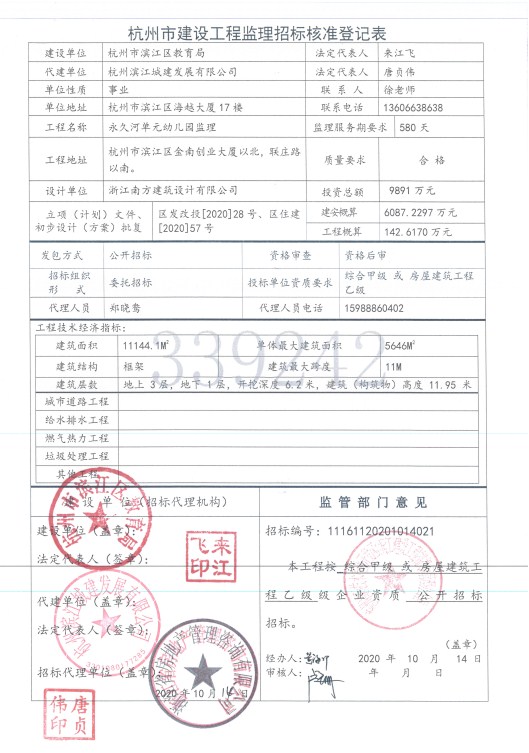 杭州市建设工程监理招标核准登记表
建设单位 杭州市滨江区教育局 法定代表人 来江飞
代建单位 杭州滨江城建发展有限公司 法定代表人 唐贞伟
单位性质 事业 联 系 人 徐老师
单位地址 杭州市滨江区海越大厦17楼 联系电话 13606638638
工程名称 永久河单元幼儿园监理 监理服务期要求 580 天
工程地址 杭州市滨江区金南创业大厦以北，联庄路以南。 质量要求 合 格
设计单位 浙江南方建筑设计有限公司 投资总额 9891 万元
立项（计划）文件、初步设计（方案）批复 区发改投[2020]28 号、区住建[2020]57 号 建安概算 6087.2297 万元
工程概算 142.6170 万元
发包方式 公开招标 资格审查 资格后审
招标组织形 式 委托招标 投标单位资质要求 综合甲级 或 房屋建筑工程乙级
代理人员 郑晓鸯 代理人员电话 15988860402
工程技术经济指标：
339242
建筑面积 11144.1M² 单体最大建筑面积 5646M²
建筑结构 框架 建筑最大跨度 11M
建筑层数 地上 3 层，地下 1 层，开挖深度 6.2 米，建筑（构筑物）高度 11.95 米
城市道路工程
给水排水工程
燃气热力工程
垃圾处理工程
其他工程
建 设 单 位（招标代理机构） 监管部门意见
建设单位（盖章）：
法定代表人（签章）：
代建单位（盖章）：
法定代表人（签章）：
招标代理单位（盖章）：
2020 年 10 月 14 日
招标编号：11161120201014021
本工程按 综合甲级 或 房屋建筑工
程乙级级企业资质 公开招标
招标。
（盖章）
经办人： 2020 年 10 月 14 日
审核人： 年 月 日
杭州市滨江区教育局
来江飞印
杭州滨江城建发展有限公司
唐贞伟印